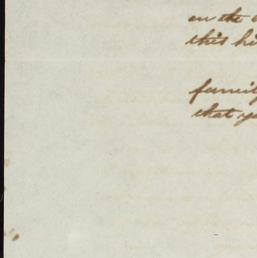 on the
this
family
that